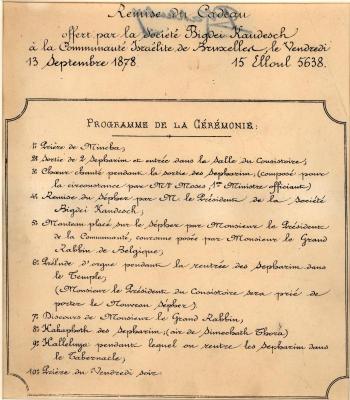 Remise du Cadeau
offert par la Société Bigdei Kaudesch
à la Communauté Israélite de Bruxelles, le Vendredi
13 Septembre 1878 15 Elloul 5638.
PROGRAMME DE LA CÉRÉMONIE:
1º Prière de Mincha;
2º Sortie de 2 Sepharim et entrée dans la Salle du Consistoire;
3º Chœur chanté pendant la sortie des Sepharim; (composé pour
la circonstance par Mr Moses, 1er Ministre officiant)
4º Remise du Sépher par M. le Président de la Société
Bigdei Kaudesch;
5º Manteau placé sur le Sépher par Monsieur le Président
de la Communauté, couronne posée par Monsieur le Grand
Rabbin de Belgique;
6º Prélude d'orgue pendant la rentrée des Sepharim dans
le Temple;
(Monsieur le Président du Consistoire sera prié de
porter le Nouveau Sépher).
7º Discours de Monsieur le Grand Rabbin;
8º Hakaphoth des Sepharim; (air de Simechath Thora)
9º Halleluya pendant lequel on rentre les Sepharim dans
le Tabernacle;
10º Prière du Vendredi soir.